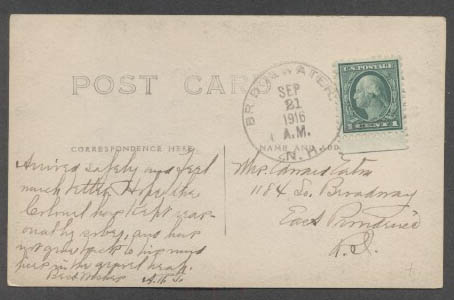 POST CARD
BRIDGEWATER
SEP
21
1916
A.M.
N.H.
U.S. POSTAGE
1 CENT 1
CORRESPONDENCE HERE
NAME AND ADD
Arrived safely and feel
much better. Hope the
Colonel has kept
and has
not gone back to his
in the gravel heap.
Best Wishes
Mrs.
1184 So. Broadway
East Providence
R.I.